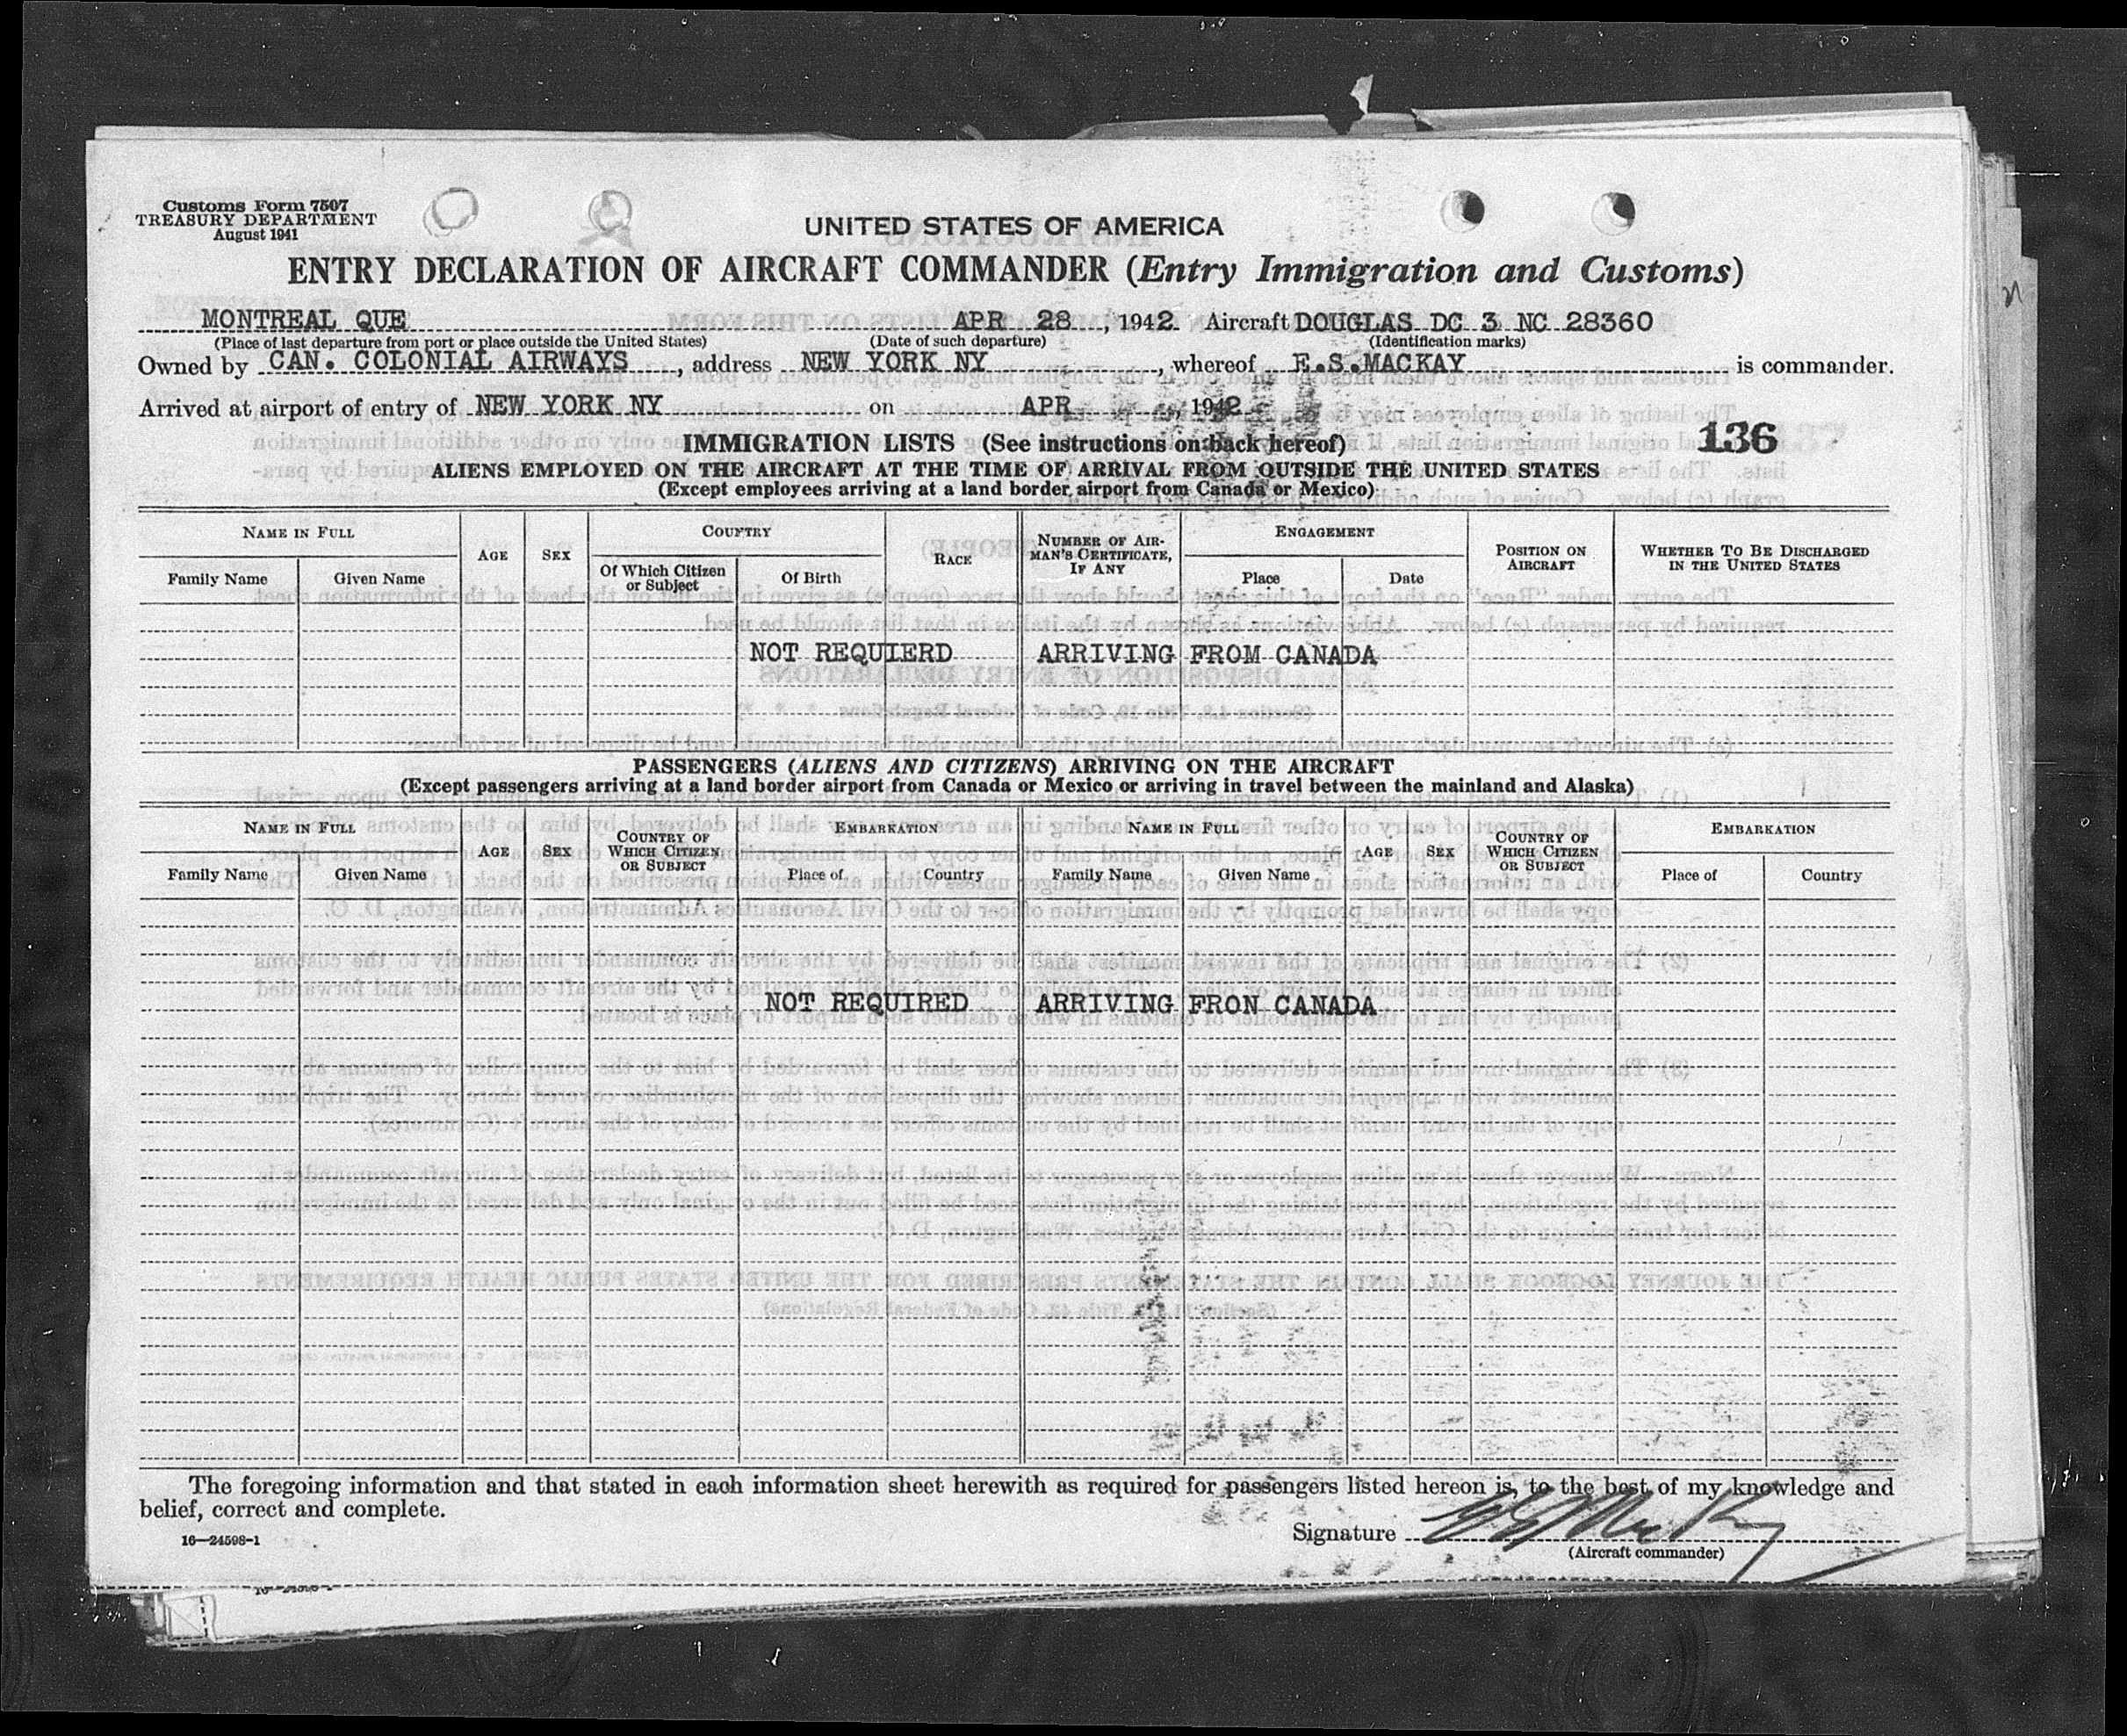 Customs Form 7507
TREASURY DEPARTMENT
August 1941
UNITED STATES OF AMERICA
ENTRY DECLARATION OF AIRCRAFT COMMANDER (Entry Immigration and Customs)
MONTREAL QUE APR 28, 1942 Aircraft DOUGLAS DC 3 NC 28360
(Place of last departure from port or place outside the United States) (Date of such departure) (Identification marks)
Owned by CAN. COLONIAL AIRWAYS, address NEW YORK NY, whereof E.S.MACKAY is commander.
Arrived at airport of entry of NEW YORK NY on APR, 1942
136
IMMIGRATION LISTS (See instructions on back hereof)
ALIENS EMPLOYED ON THE AIRCRAFT AT THE TIME OF ARRIVAL FROM OUTSIDE THE UNITED STATES
(Except employees arriving at a land border airport from Canada or Mexico)
NAME IN FULL AGE SEX COUNTRY RACE NUMBER OF AIRMAN'S CERTIFICATE, IF ANY ENGAGEMENT POSITION ON AIRCRAFT WHETHER TO BE DISCHARGED IN THE UNITED STATES
Family Name Given Name Of Which Citizen or Subject Of Birth Place Date
NOT REQUIERD ARRIVING FROM CANADA
PASSENGERS (ALIENS AND CITIZENS) ARRIVING ON THE AIRCRAFT
(Except passengers arriving at a land border airport from Canada or Mexico or arriving in travel between the mainland and Alaska)
NAME IN FULL AGE SEX COUNTRY OF WHICH CITIZEN OR SUBJECT EMBARKATION NAME IN FULL AGE SEX COUNTRY OF WHICH CITIZEN OR SUBJECT EMBARKATION
Family Name Given Name Place of Country Family Name Given Name Place of Country
NOT REQUIRED ARRIVING FRON CANADA
The foregoing information and that stated in each information sheet herewith as required for passengers listed hereon is, to the best of my knowledge and
belief, correct and complete.
16—24598-1
Signature E S MacKay
(Aircraft commander)